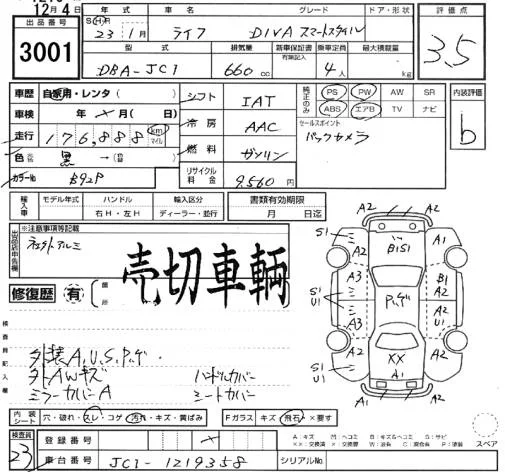 12月4日
出品番号
3001
年式
S(H)R
23年1月
車名
ライフ
グレード
DIVA スマートスタイル
ドア・形状
評価点
3.5
型式
DBA-JC1
排気量
660 cc
新車保証書
有 ・ 無
乗車定員
4人
最大積載量
kg
車歴
自家用・レンタ( )
車検
年 月( 日)
走行
176,888 km マイル
色
黒
カラーNo
B92P
シフト
IAT
冷房
AAC
燃料
ガソリン
リサイクル料金
9,560円
純正のみ
PS PW AW SR
ABS エアB TV ナビ
セールスポイント
バックカメラ
内装評価
b
輸入車
モデル年式
ハンドル
右H・左H
輸入区分
ディーラー・並行
書類有効期限
月 日迄
※注意事項等記載
出品店申告欄
売切車輌
修復歴 有
箇所
検査員記入欄
外装A,U,S,P,ゲ.
外AWキズ
ミラーカバーA
ハンドルカバー
シートカバー
A2 A2
S1 A2 A1
B1S1
A3 B1
S1 U1
A2
A3 U1
S1 U1
A2 XX A2
A1
A1 A2
内装シート
穴・破れ・スレ・コゲ 汚れ・キズ・黄ばみ
Fガラス キズ・飛石・×要す
A:キズ
スペア
検査員
23
登録番号
車台番号
JC1-1219358
シリアルNo.